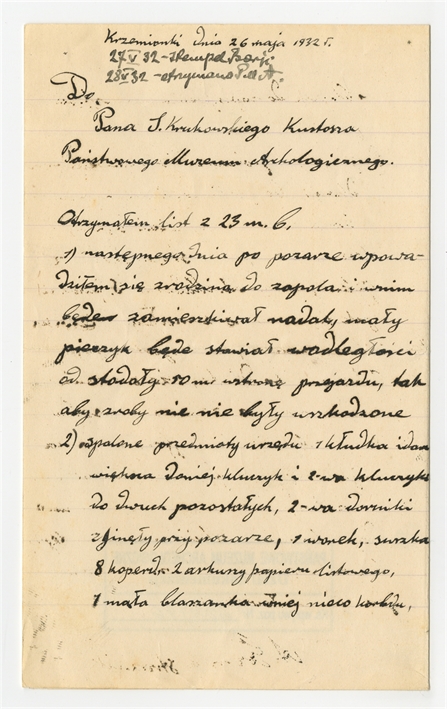 Krzemionki dnia 26 maja 1932 r.
27 V 32 - Stempel
28 V 32 - otrzymano P. M. A.
Do
Pana S. Krukowskiego Kustosza
Państwowego Muzeum Archologicznego.
Otrzymałem list z 23 m. b.
1) następnego dnia po pożarze wpowa-
dziłem się z rodziną do zapola i wnim
będe zamieszkiwał nadal, mały
pieczyk będe stawiał wodległości
od stodoły 10 m wstronę przejazdu, tak
aby zroby nie nie były uszkodzone
2) spalone przedmioty urzędu 1 kłudka
większa doniej kluczyk i 2-wa kluczyki
do dwuch pozostałych, 2-wa dorniki
zginęły przy pożarze, 1 worek,
8 kopert 2 arkuszy papieru listowego,
1 mała blaszanka wniej nieco karbidu,